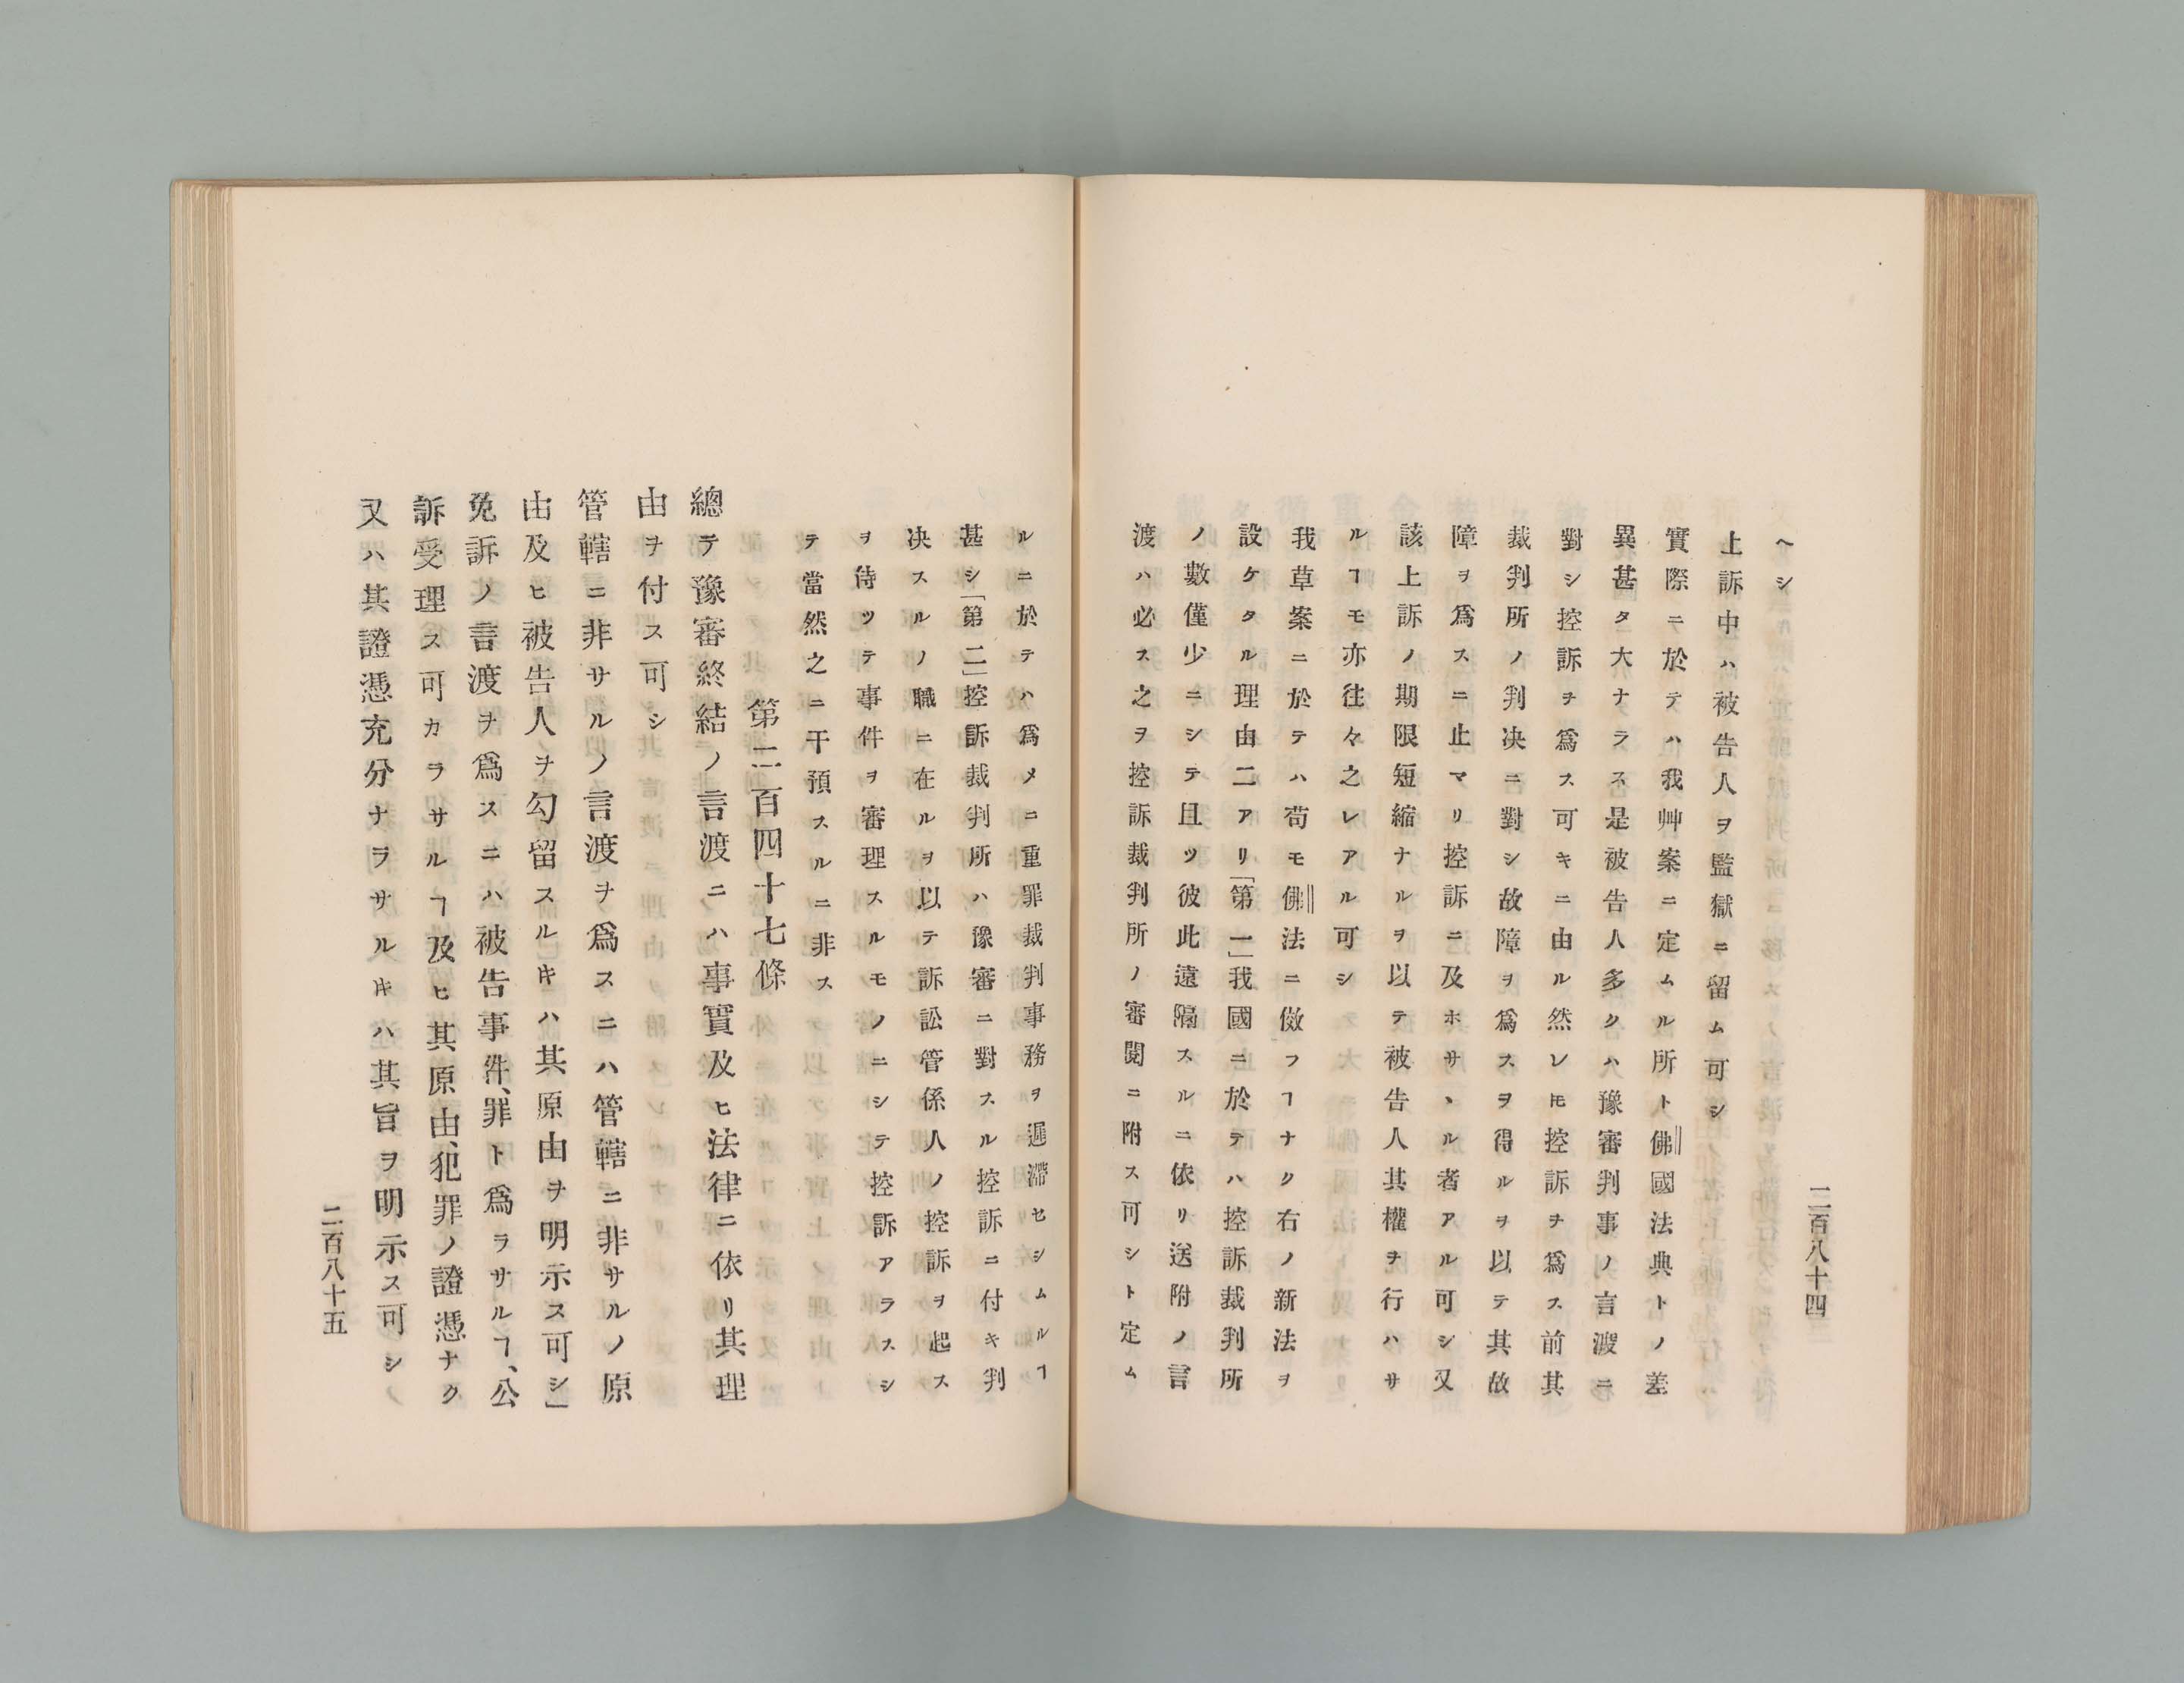 二百八十四
ヘシ
上訴中ハ被告人ヲ監獄ニ留ム可シ
實際ニ於テハ我艸案ニ定ムル所ト佛國法典トノ差
異甚タ大ナラス是被告人多クハ豫審判事ノ言渡ニ
對シ控訴ヲ爲ス可キニ由ル然レ𪜈控訴ヲ爲ス前其
裁判所ノ判决ニ對シ故障ヲ爲スヲ得ルヲ以テ其故
障ヲ爲スニ止マリ控訴ニ及ホサヽル者アル可シ又
該上訴ノ期限短縮ナルヲ以テ被告人其權ヲ行ハサ
ルヿモ亦往々之レアル可シ
我草案ニ於テハ苟モ佛法ニ倣フヿナク右ノ新法ヲ
設ケタル理由二アリ「第一」我國ニ於テハ控訴裁判所
ノ數僅少ニシテ且ツ彼此遠隔スルニ依リ送附ノ言
渡ハ必ス之ヲ控訴裁判所ノ審閱ニ附ス可シト定ム
ルニ於テハ爲メニ重罪裁判事務ヲ遲滯セシムルヿ
甚シ「第二」控訴裁判所ハ豫審ニ對スル控訴ニ付キ判
决スルノ職ニ在ルヲ以テ訴訟管係人ノ控訴ヲ起ス
ヲ待ツテ事件ヲ審理スルモノニシテ控訴アラスシ
テ當然之ニ干預スルニ非ス
第二百四十七條
總テ豫審終結ノ言渡ニハ事實及ヒ法律ニ依リ其理
由ヲ付ス可シ
管轄ニ非サルノ言渡ヲ爲スニハ管轄ニ非サルノ原
由及ヒ被告人ヲ勾留スル𪜈ハ其原由ヲ明示ス可シ」
免訴ノ言渡ヲ爲スニハ被告事件、罪ト爲ラサルヿ、公
訴受理ス可カラサルヿ及ヒ其原由、犯罪ノ證憑ナク
又ハ其證憑充分ナラサルキハ其旨ヲ明示ス可シ
二百八十五